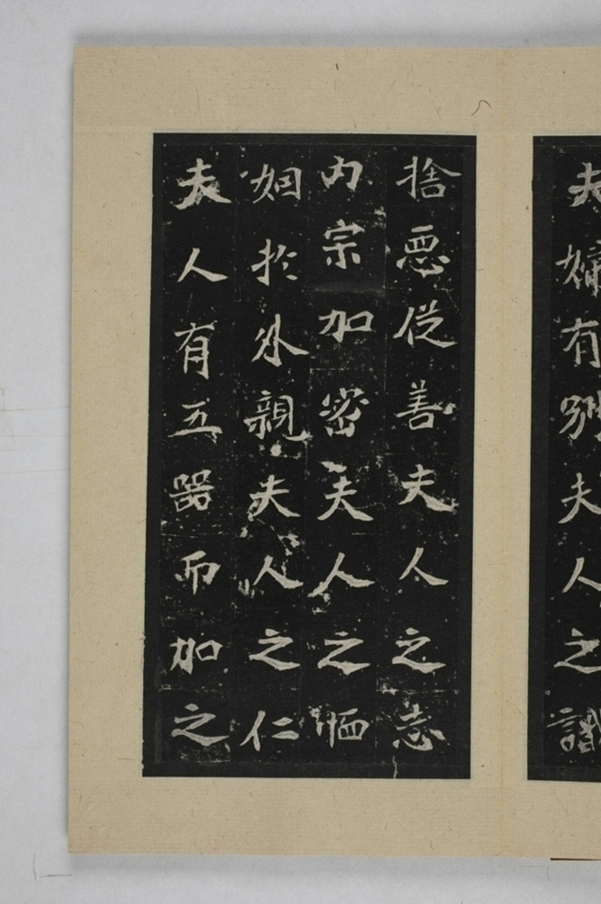 夫婦有別夫人之識
捨惡從善夫人之志
內宗加密夫人之恤
姻於外親夫人之仁
夫人有五器而加之